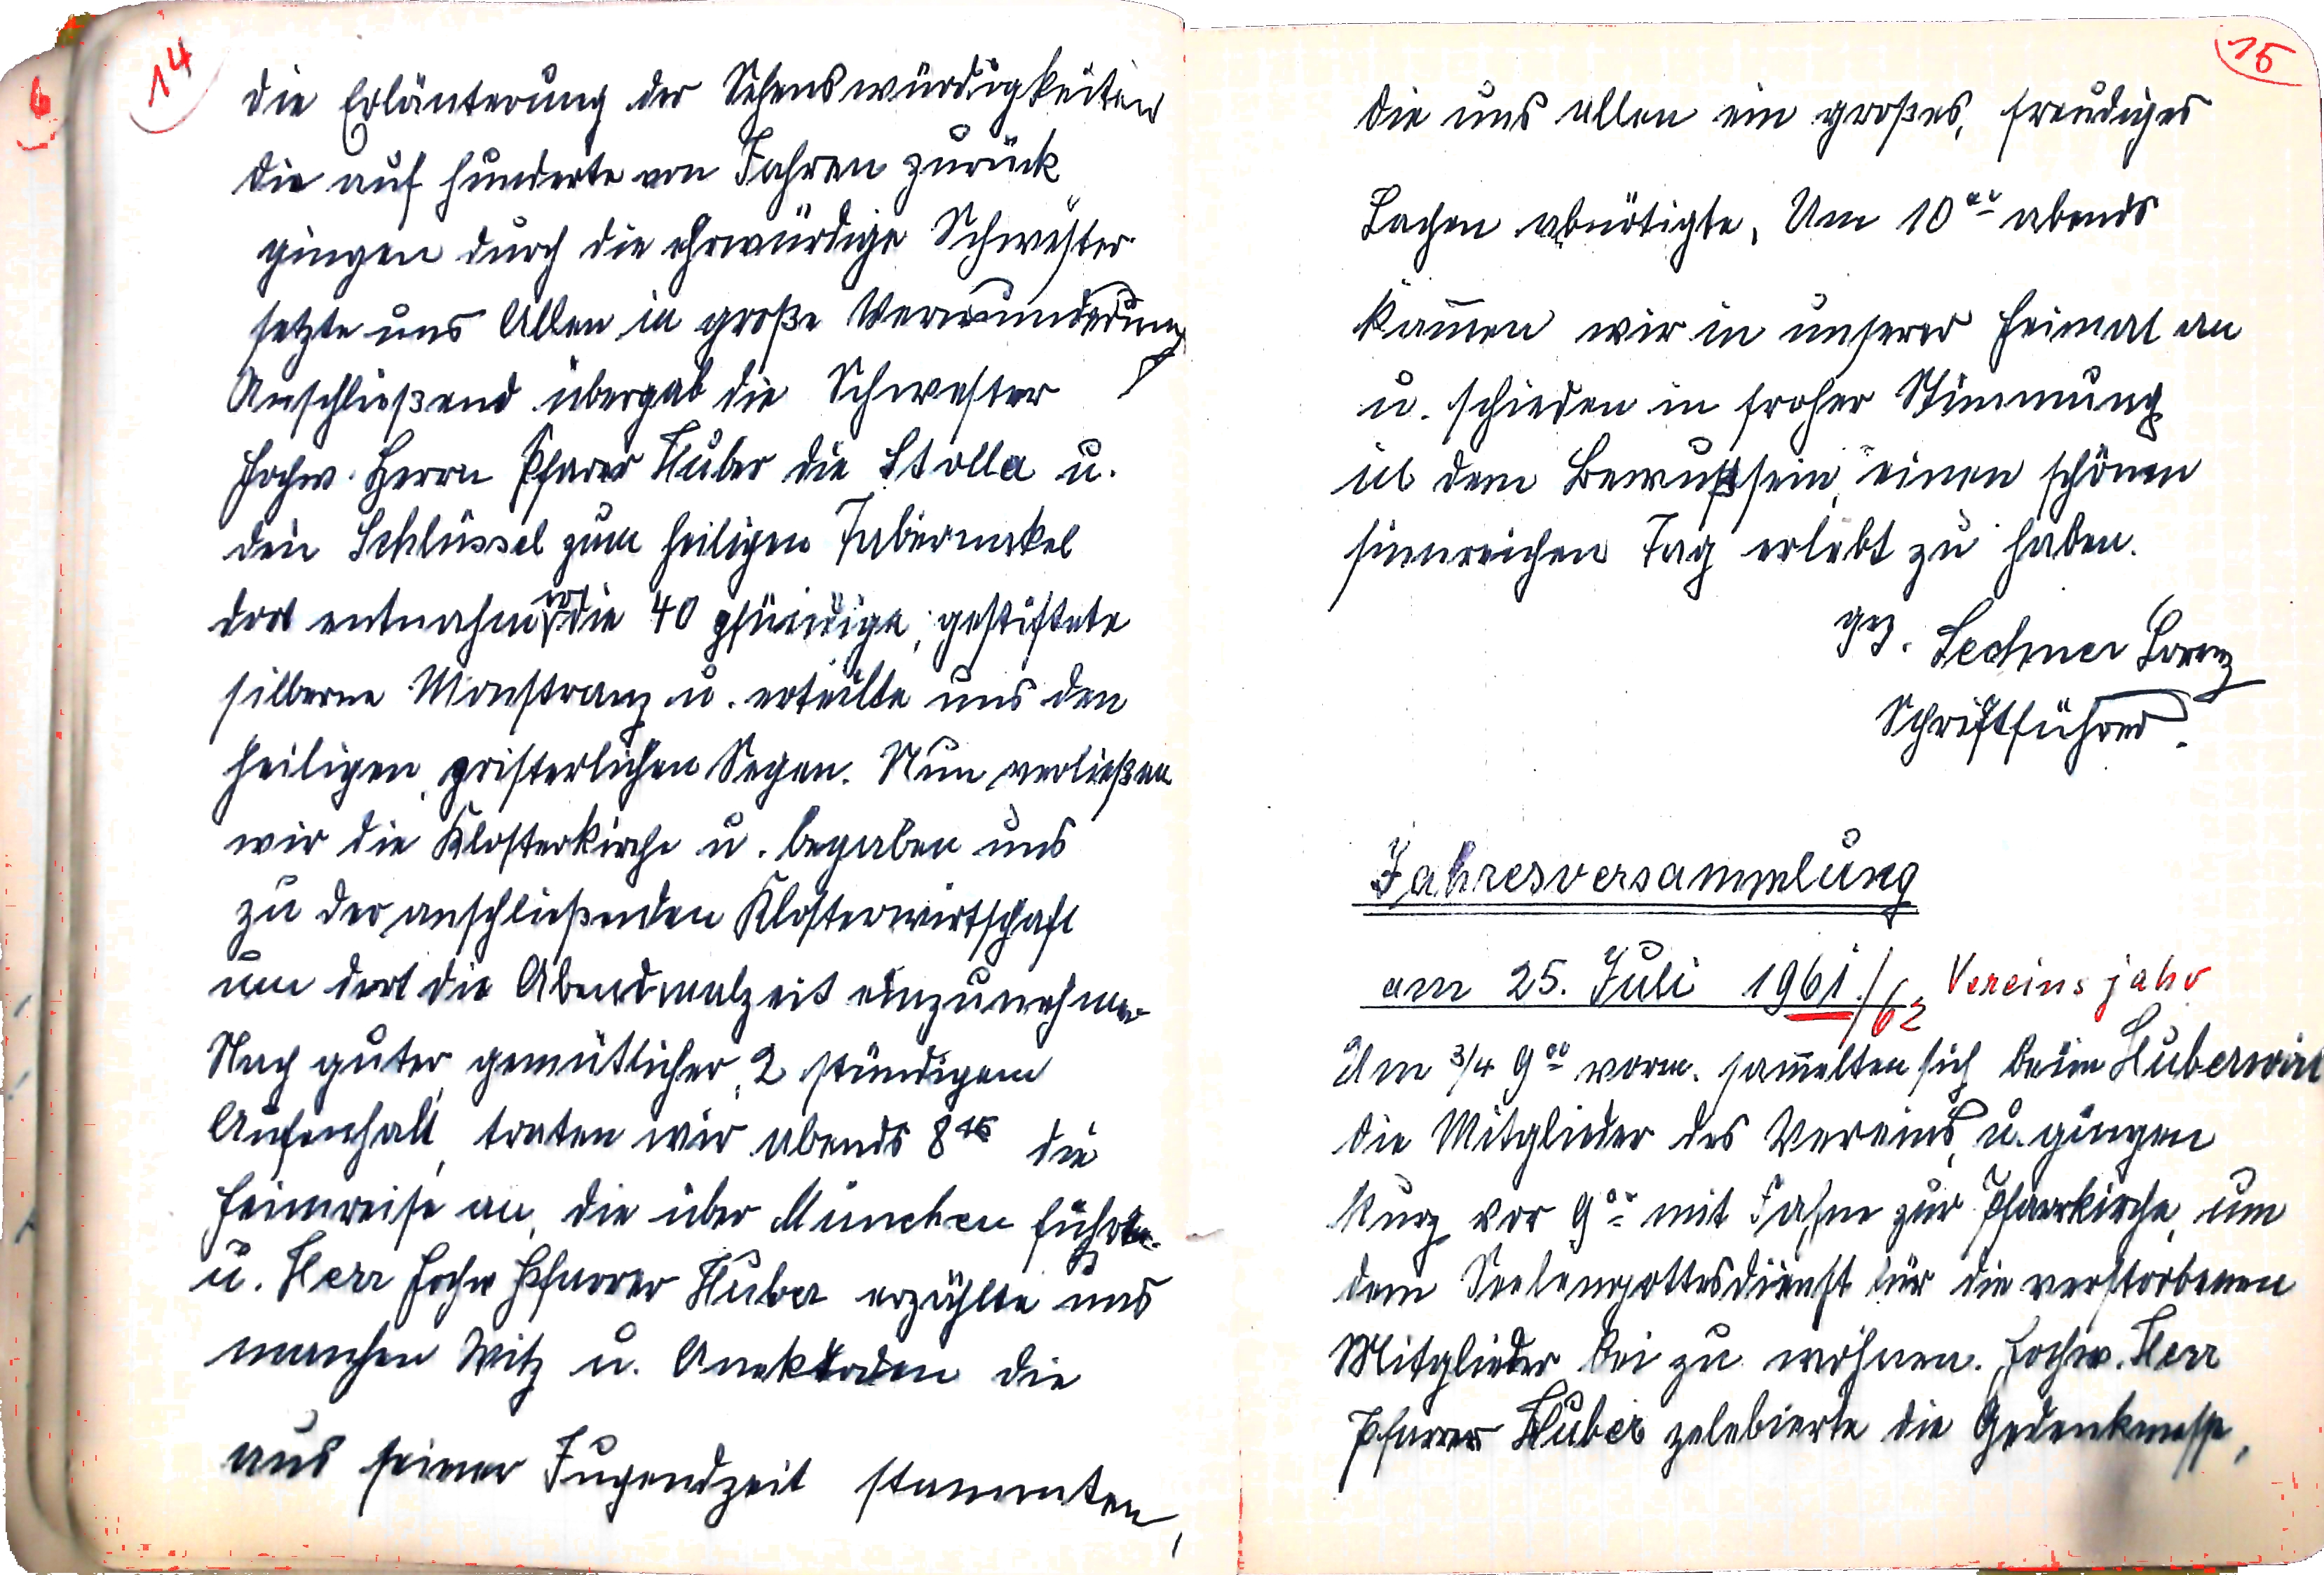 14
die Erläuterung der Sehenswürdigkeiten
die auf hunderte von Jahren zurück
gingen durch die ehrwürdige Schwester
setzte uns Allen in große Verwunderung
Anschließend übergab die Schwester
Hochw. Herrn Pfarrer Huber die Stolla u.
den Schlüssel zum heiligen Tabernakel
dort entnahm er die 40 pfündige, gestiftete
silberne Monstranz u. erteilte uns den
heiligen pristerlichen Segen. Nun verließen
wir die Klosterkirche u. begaben uns
zu der anschließenden Klosterwirtschaft
um dort die Abendmalzeit einzunehmen
Nach guter gemütlicher, 2 stündigem
Aufenhalt, traten wir abends 8 15 die
Heimreise an, die über München führte.
u. Herr Hochw Pfarrer Huber erzählte uns
manchen Witz u. Anektoden die
aus seiner Jugendzeit stammten,
15
die uns allen ein großes, freudiges
Lachen abnötigte. Um 10 00 abends
kam̄en wir in unserer Heimat an
u. schieden in froher Stimmung
in dem Bewußtsein, einen schönen
sinnreichen Tag erlebt zu haben.
gez. Lechner Lorenz
Schriftführer.
Jahresversammlung
am 25. Juli 1961./62 Vereinsjahr
Um 3/4 9 00 vorm. sam̄elten sich beim Huberwirt
die Mitglieder des Vereins, u. gingen
kurz vor 9 00 mit Fahne zur Pfarrkirche, um
dem Seelengottesdienst für die verstorbenen
Mitglieder bei zu wohnen. Hochw. Herr
Pfarrer Huber zelebierte die Gedenkmesse,